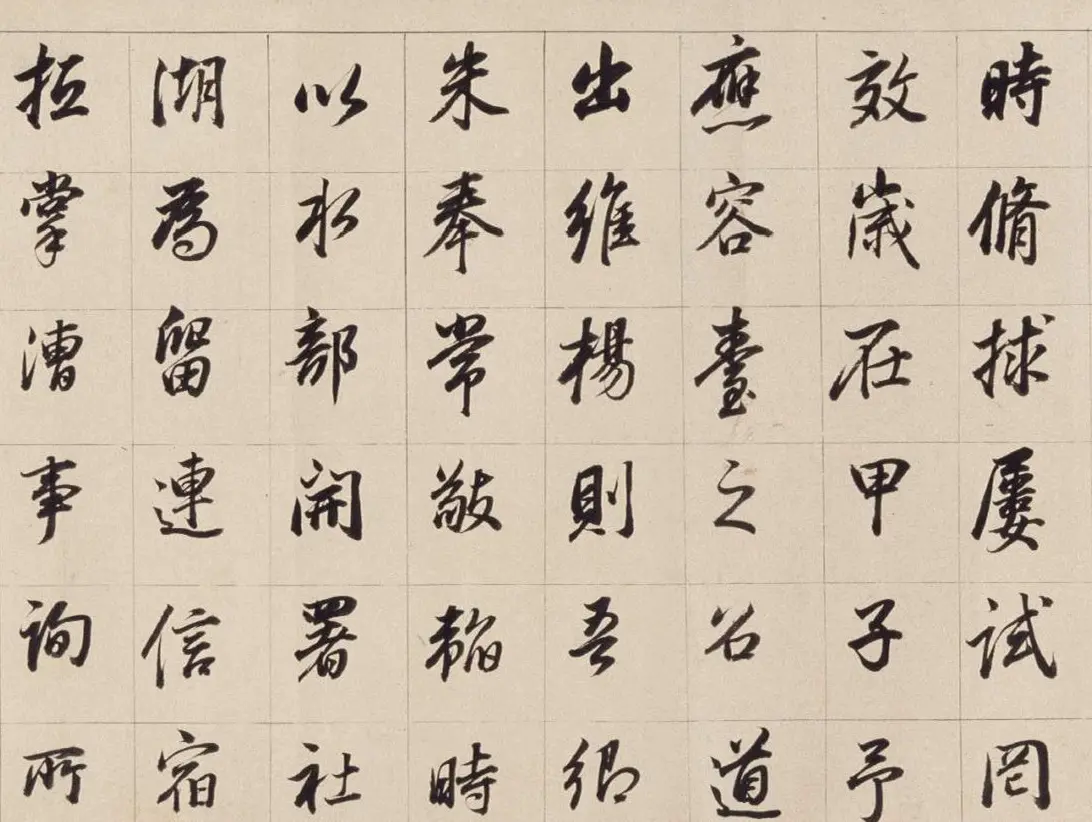 時脩捄屢試罔
效歲在甲子予
應容臺之召道
出維楊則吾鄉
朱奉常敬韜時
以水部開署社
湖為留連信宿
抵掌漕事詢所